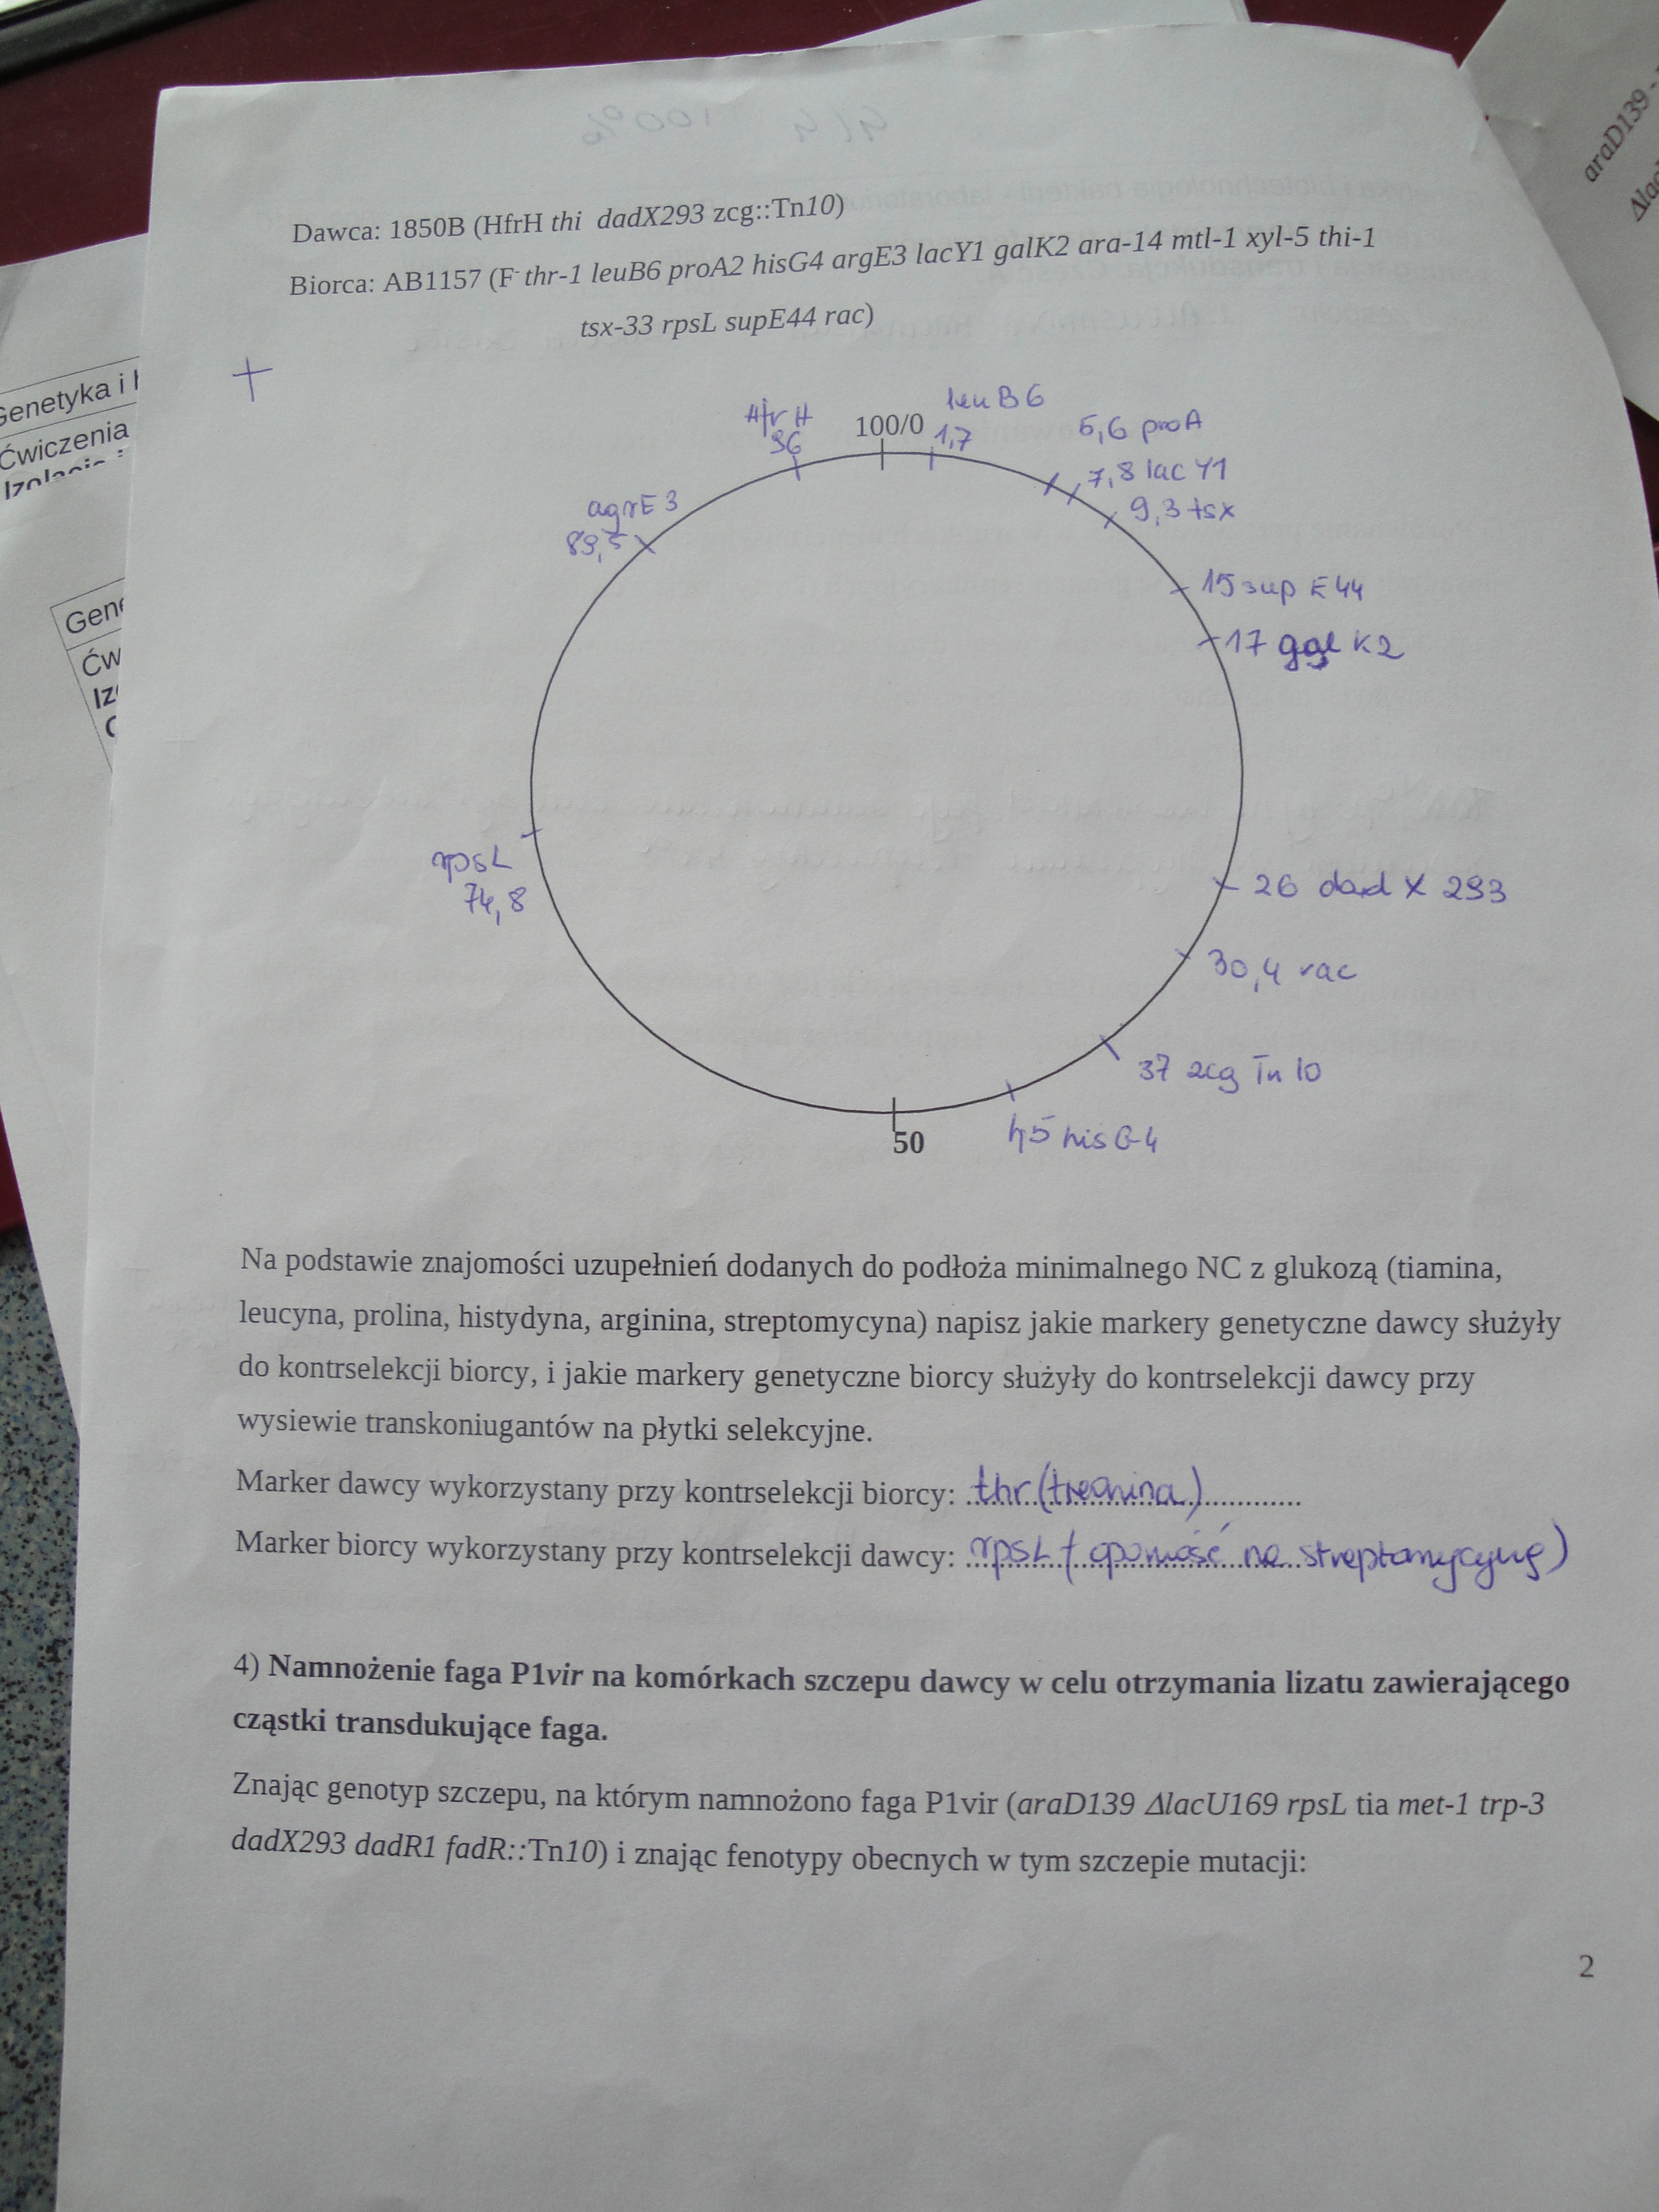 araD139 -
Δlac
Dawca: 1850B (HfrH thi dadX293 zcg::Tn10)
Biorca: AB1157 (F- thr-1 leuB6 proA2 hisG4 argE3 lacY1 galK2 ara-14 mtl-1 xyl-5 thi-1
tsx-33 rpsL supE44 rac)
Genetyka i
Ćwiczenia
+
Hfr H
96
100/0
leu B6
1,7
5,6 proA
7,8 lac Y1
9,3 tsx
agrE 3
89,5
15 sup E44
17 gal K2
rpsL
74,8
26 dad X 293
30,4 rac
37 zcg Tn 10
45 his G-4
50
Na podstawie znajomości uzupełnień dodanych do podłoża minimalnego NC z glukozą (tiamina,
leucyna, prolina, histydyna, arginina, streptomycyna) napisz jakie markery genetyczne dawcy służyły
do kontrselekcji biorcy, i jakie markery genetyczne biorcy służyły do kontrselekcji dawcy przy
wysiewie transkoniugantów na płytki selekcyjne.
Marker dawcy wykorzystany przy kontrselekcji biorcy: thr (treonina)
Marker biorcy wykorzystany przy kontrselekcji dawcy: rpsL (oporność na streptomycynę)
4) Namnożenie faga P1vir na komórkach szczepu dawcy w celu otrzymania lizatu zawierającego
cząstki transdukujące faga.
Znając genotyp szczepu, na którym namnożono faga P1vir (araD139 ΔlacU169 rpsL tia met-1 trp-3
dadX293 dadR1 fadR::Tn10) i znając fenotypy obecnych w tym szczepie mutacji:
2